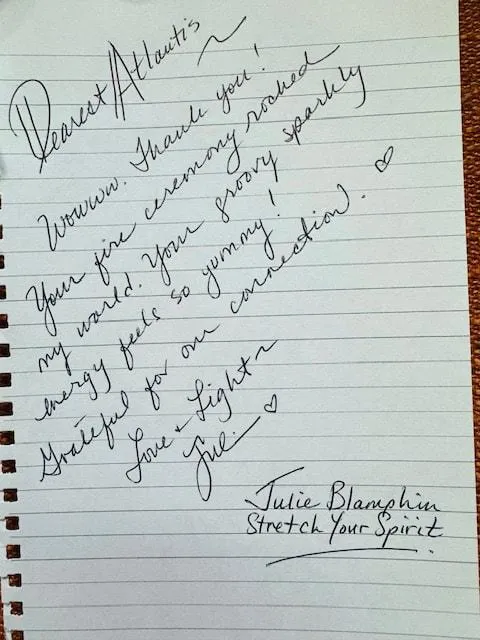 Dearest Atlantis ~
Wowww. Thank you!
Your fire ceremony rocked
my world. Your groovy sparkly
energy feels so yummy!
Grateful for our connection. ♡
Love + Light ~
Jule. ♡
Julie Blamphin
Stretch Your Spirit